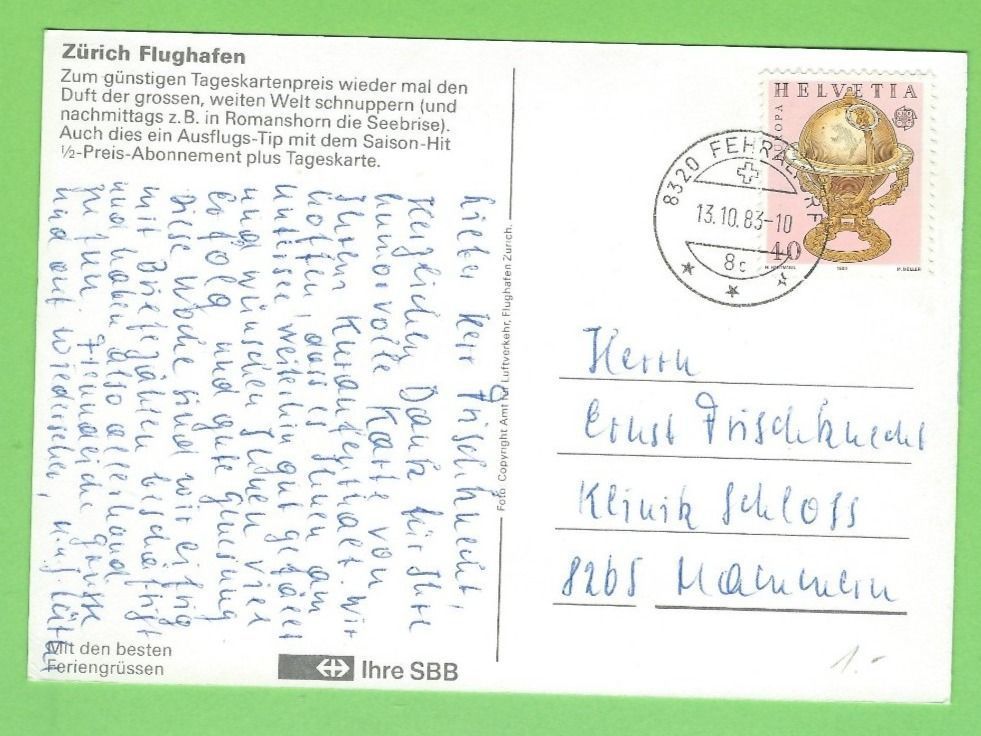 Zürich Flughafen
Zum günstigen Tageskartenpreis wieder mal den
Duft der grossen, weiten Welt schnuppern (und
nachmittags z.B. in Romanshorn die Seebrise).
Auch dies ein Ausflugs-Tip mit dem Saison-Hit
½-Preis-Abonnement plus Tageskarte.
Lieber Herr Frischknecht,
Herzlichen Dank für Ihre
humorvolle Karte von
Ihrem Kuraufenthalt. Wir
hoffen, dass es Ihnen am
Untersee weiterhin gut gefällt
und wünschen Ihnen viel
Erfolg und gute Genesung
Diese Woche sind wir eifrig
mit Briefezählen beschäftigt
und haben also allerhand
zu tun. Freundliche Grüsse
und auf Wiedersehen,
Mit den besten
Feriengrüssen
Ihre SBB
Foto Copyright Amt für Luftverkehr, Flughafen Zürich.
HELVETIA
EUROPA
40
1983
8320 FEHRALTORF
13.10.83-10
8c
Herrn
Ernst Frischknecht
Klinik Schloss
8265 Mammern
1.-